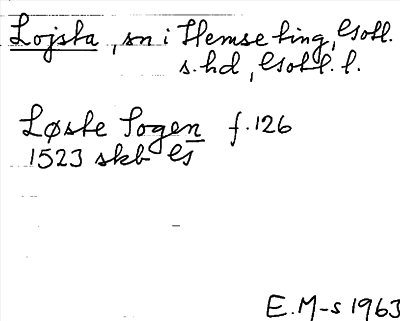 Lojsta, sn i Hemse ting, Gotl.
s. hd, Gotl. l.
Løste Sogen f. 126
1523 skb G
E. M-s 1963